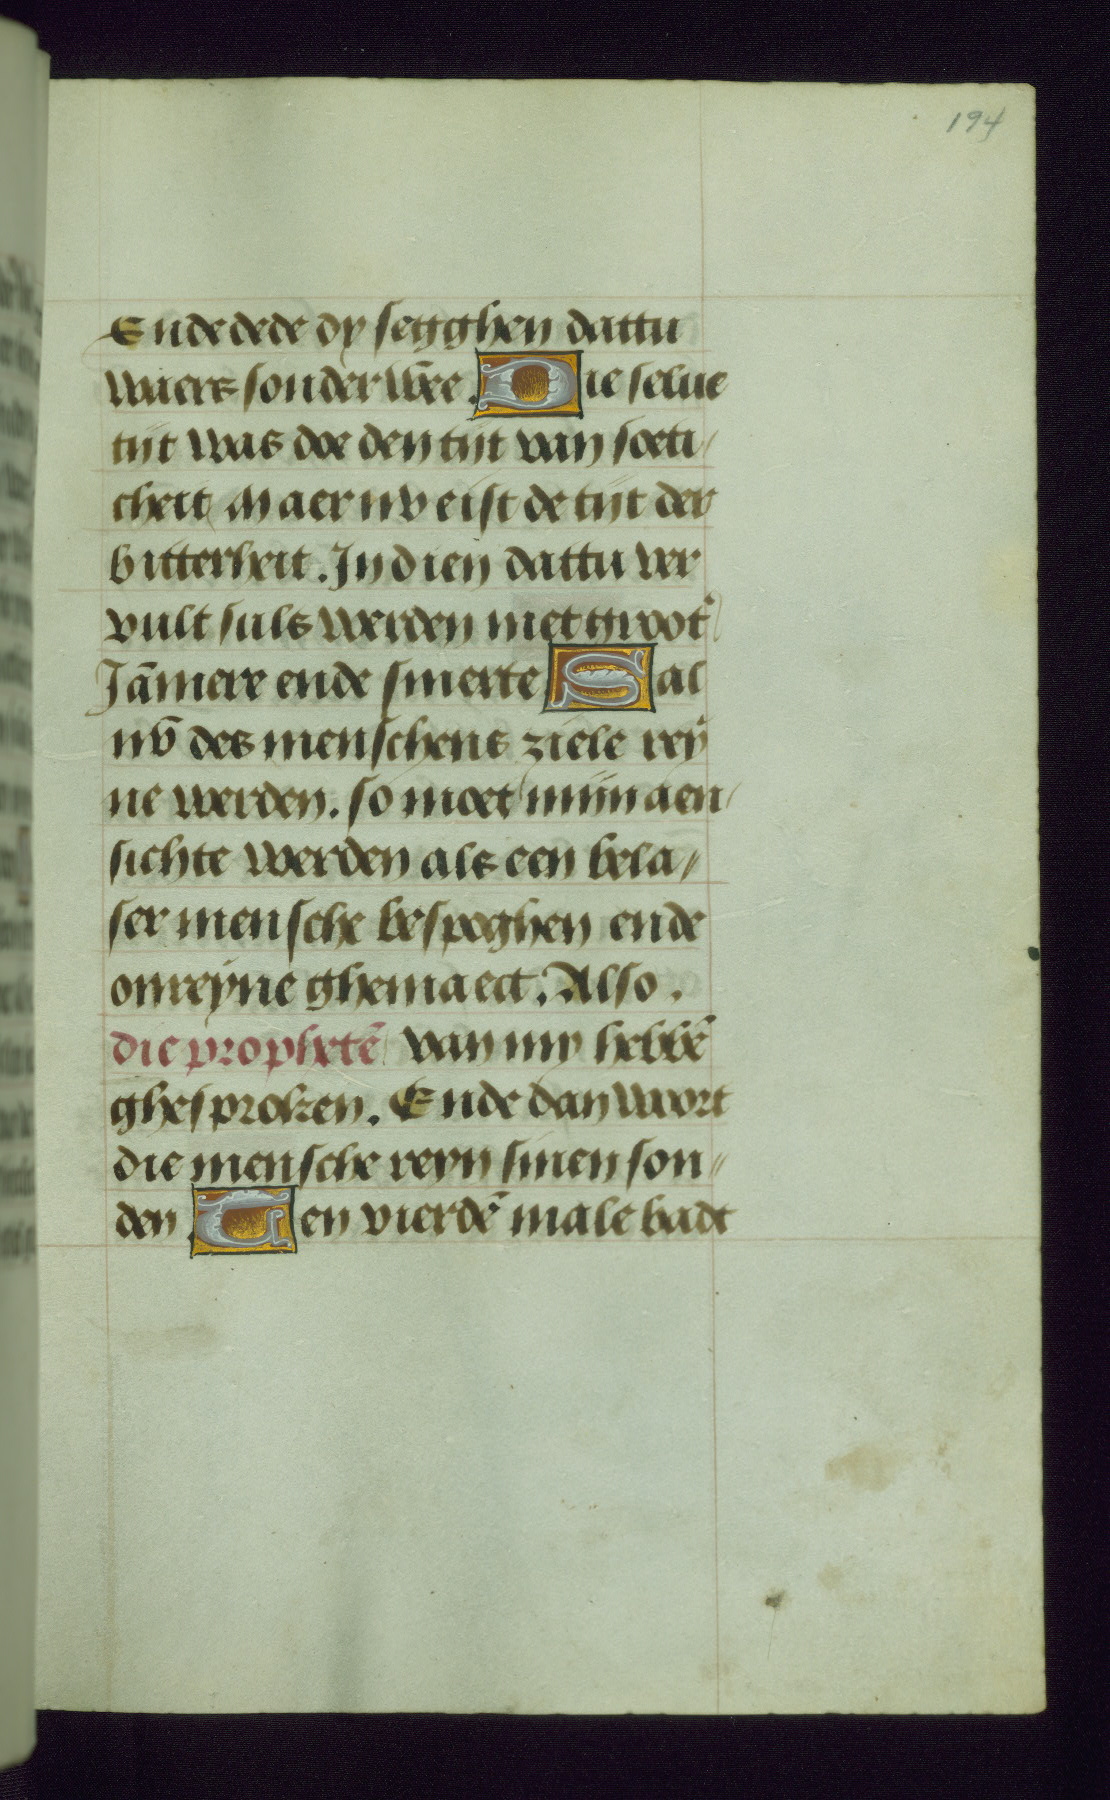 194
Ende dede dy segghen dattu
waers sonder wee. Die selue
tijt was doe den tijt van soeti/
cheit Maer nv eist de tijt der
bitterheit. In dien dattu ver
vult suls werden met groot'
Jāmere ende smerte Sal
nv des menschens ziele reÿ
ne werden. so moet mijn aen/
sichte werden als een bela//
ser mensche bespoghen ende
onreyne ghemaect. Also.
die prophetē van my hebbē
ghesproken. Ende dan wort
die mensche reyn sinen son//
den Ten vierdē male badt